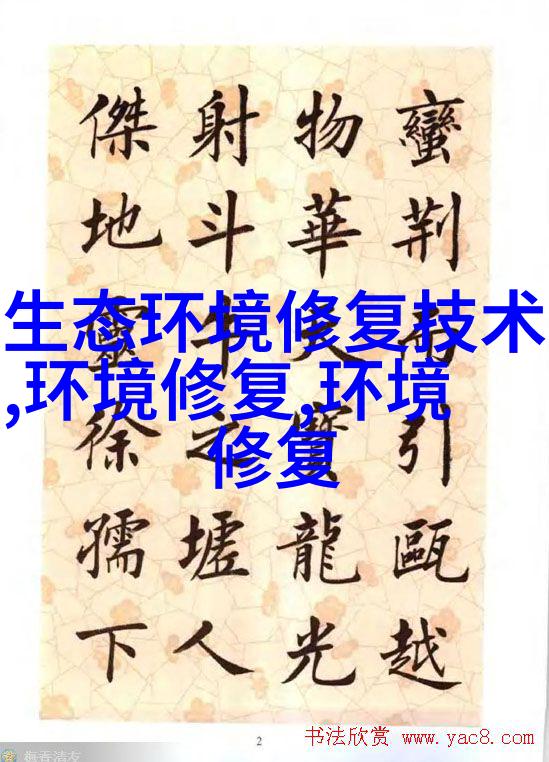 蠻荆而引甌越
物華天寶龍光
射斗牛之墟人
傑地靈徐孺下
生态环境修复技术
,环境修复,环境
修复
2
书法欣赏 www.yac8.com